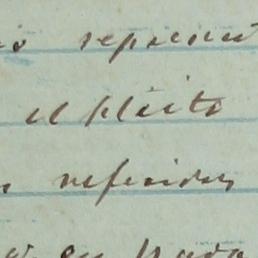 represent
el pleito
referidos
en para